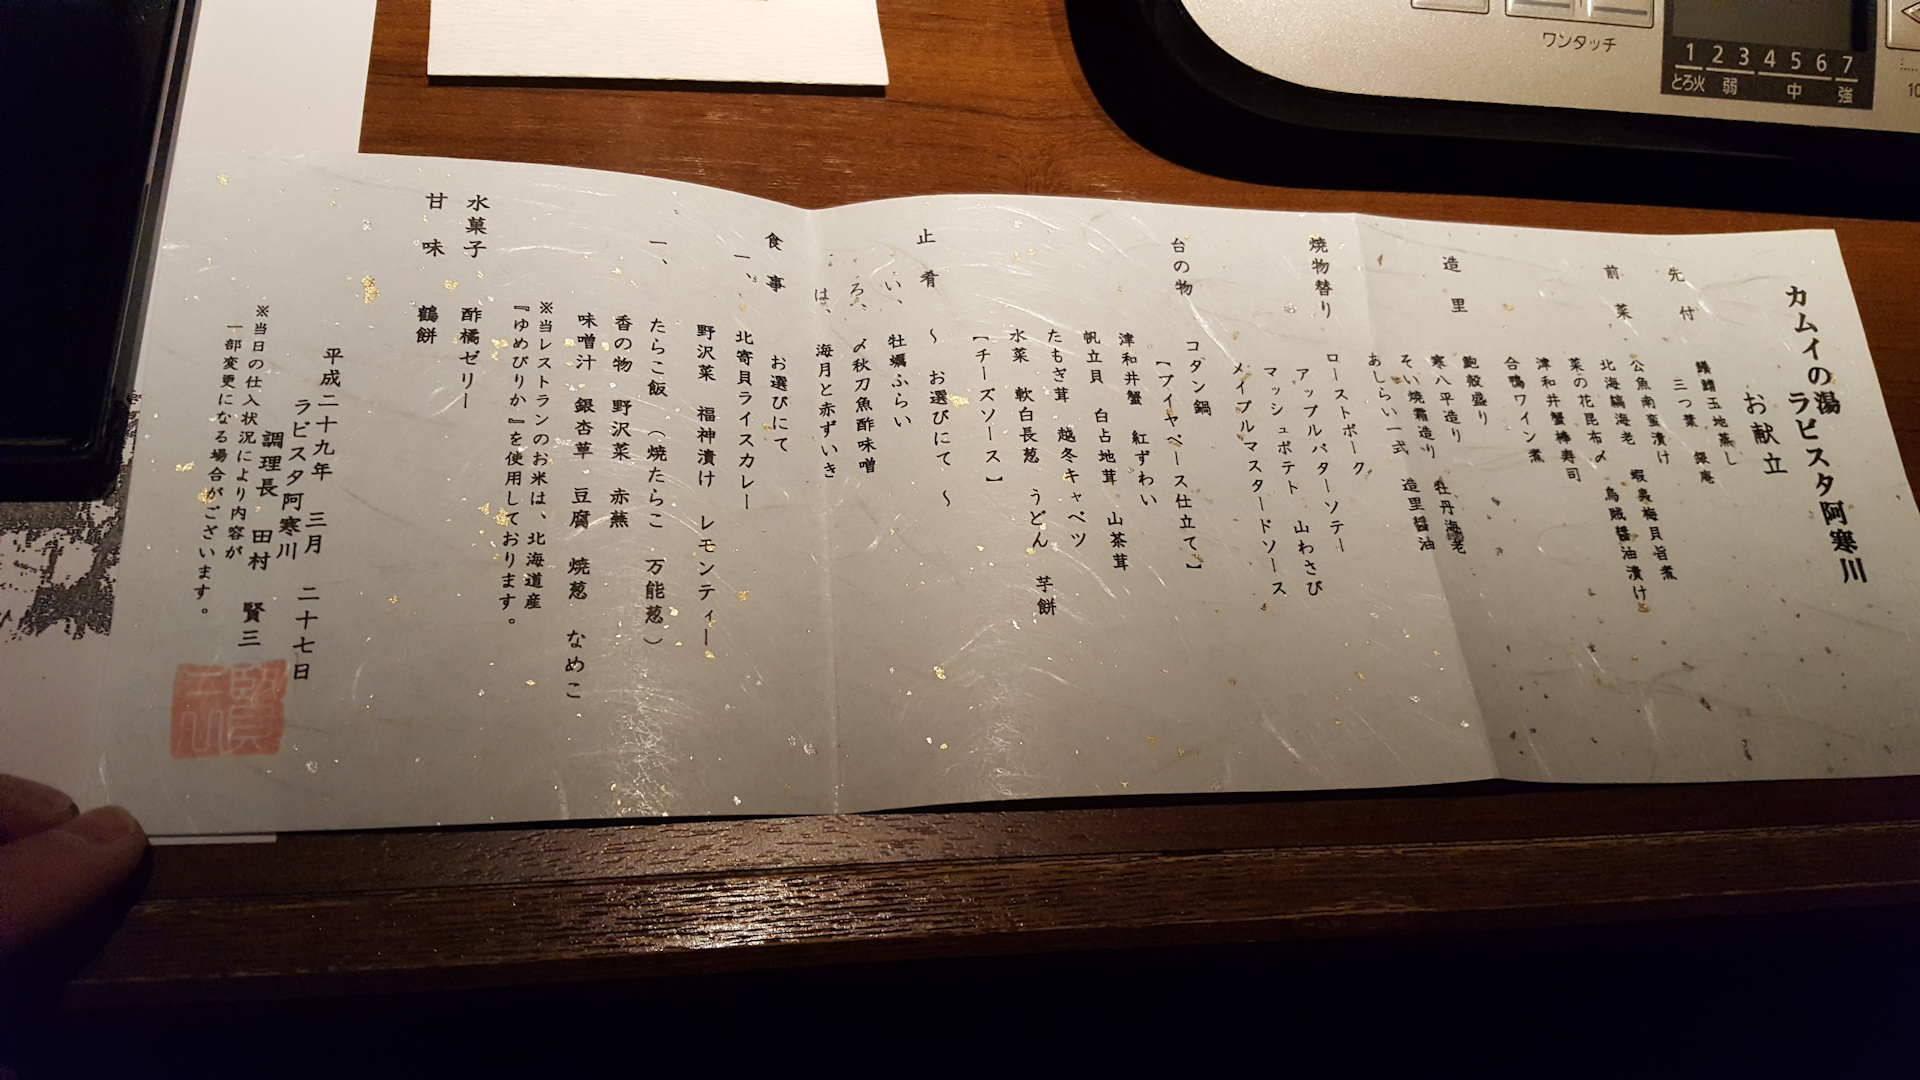 カムイの湯
ラビスタ阿寒川
お献立
先付
玉地蒸し
三つ葉 銀庵
前菜
公魚南蛮漬け 蝦夷梅貝旨煮
北海縞海老 烏賊醤油漬け
菜の花昆布〆
津和井蟹棒寿司
合鴨ワイン煮
造里
鮑殻盛り
寒八平造り 牡丹海老
そい焼霜造り 造里醤油
あしらい一式
焼物替り
ローストポーク
アップルバターソテー
マッシュポテト 山わさび
メイプルマスタードソース
台の物
コタン鍋
【ブイヤベース仕立て】
津和井蟹 紅ずわい
帆立貝 白占地茸 山茶茸
たもぎ茸 越冬キャベツ
水菜 軟白長葱 うどん 芋餅
【チーズソース】
止肴
〜 お選びにて 〜
い、 牡蠣ふらい
ろ、 〆秋刀魚酢味噌
は、 海月と赤ずいき
食事
お選びにて
一、 北寄貝ライスカレー
野沢菜 福神漬け レモンティー
一、 たらこ飯 (焼たらこ 万能葱)
香の物 野沢菜 赤蕪
味噌汁 銀杏草 豆腐 焼葱 なめこ
※当レストランのお米は、北海道産
『ゆめぴりか』を使用しております。
水菓子 酢橘ゼリー
甘味 鶴餅
平成二十九年 三月 二十七日
ラビスタ阿寒川
調理長 田村 賢三
※当日の仕入状況により内容が
一部変更になる場合がございます。
ワンタッチ
1 2 3 4 5 6 7
とろ火 弱 中 強